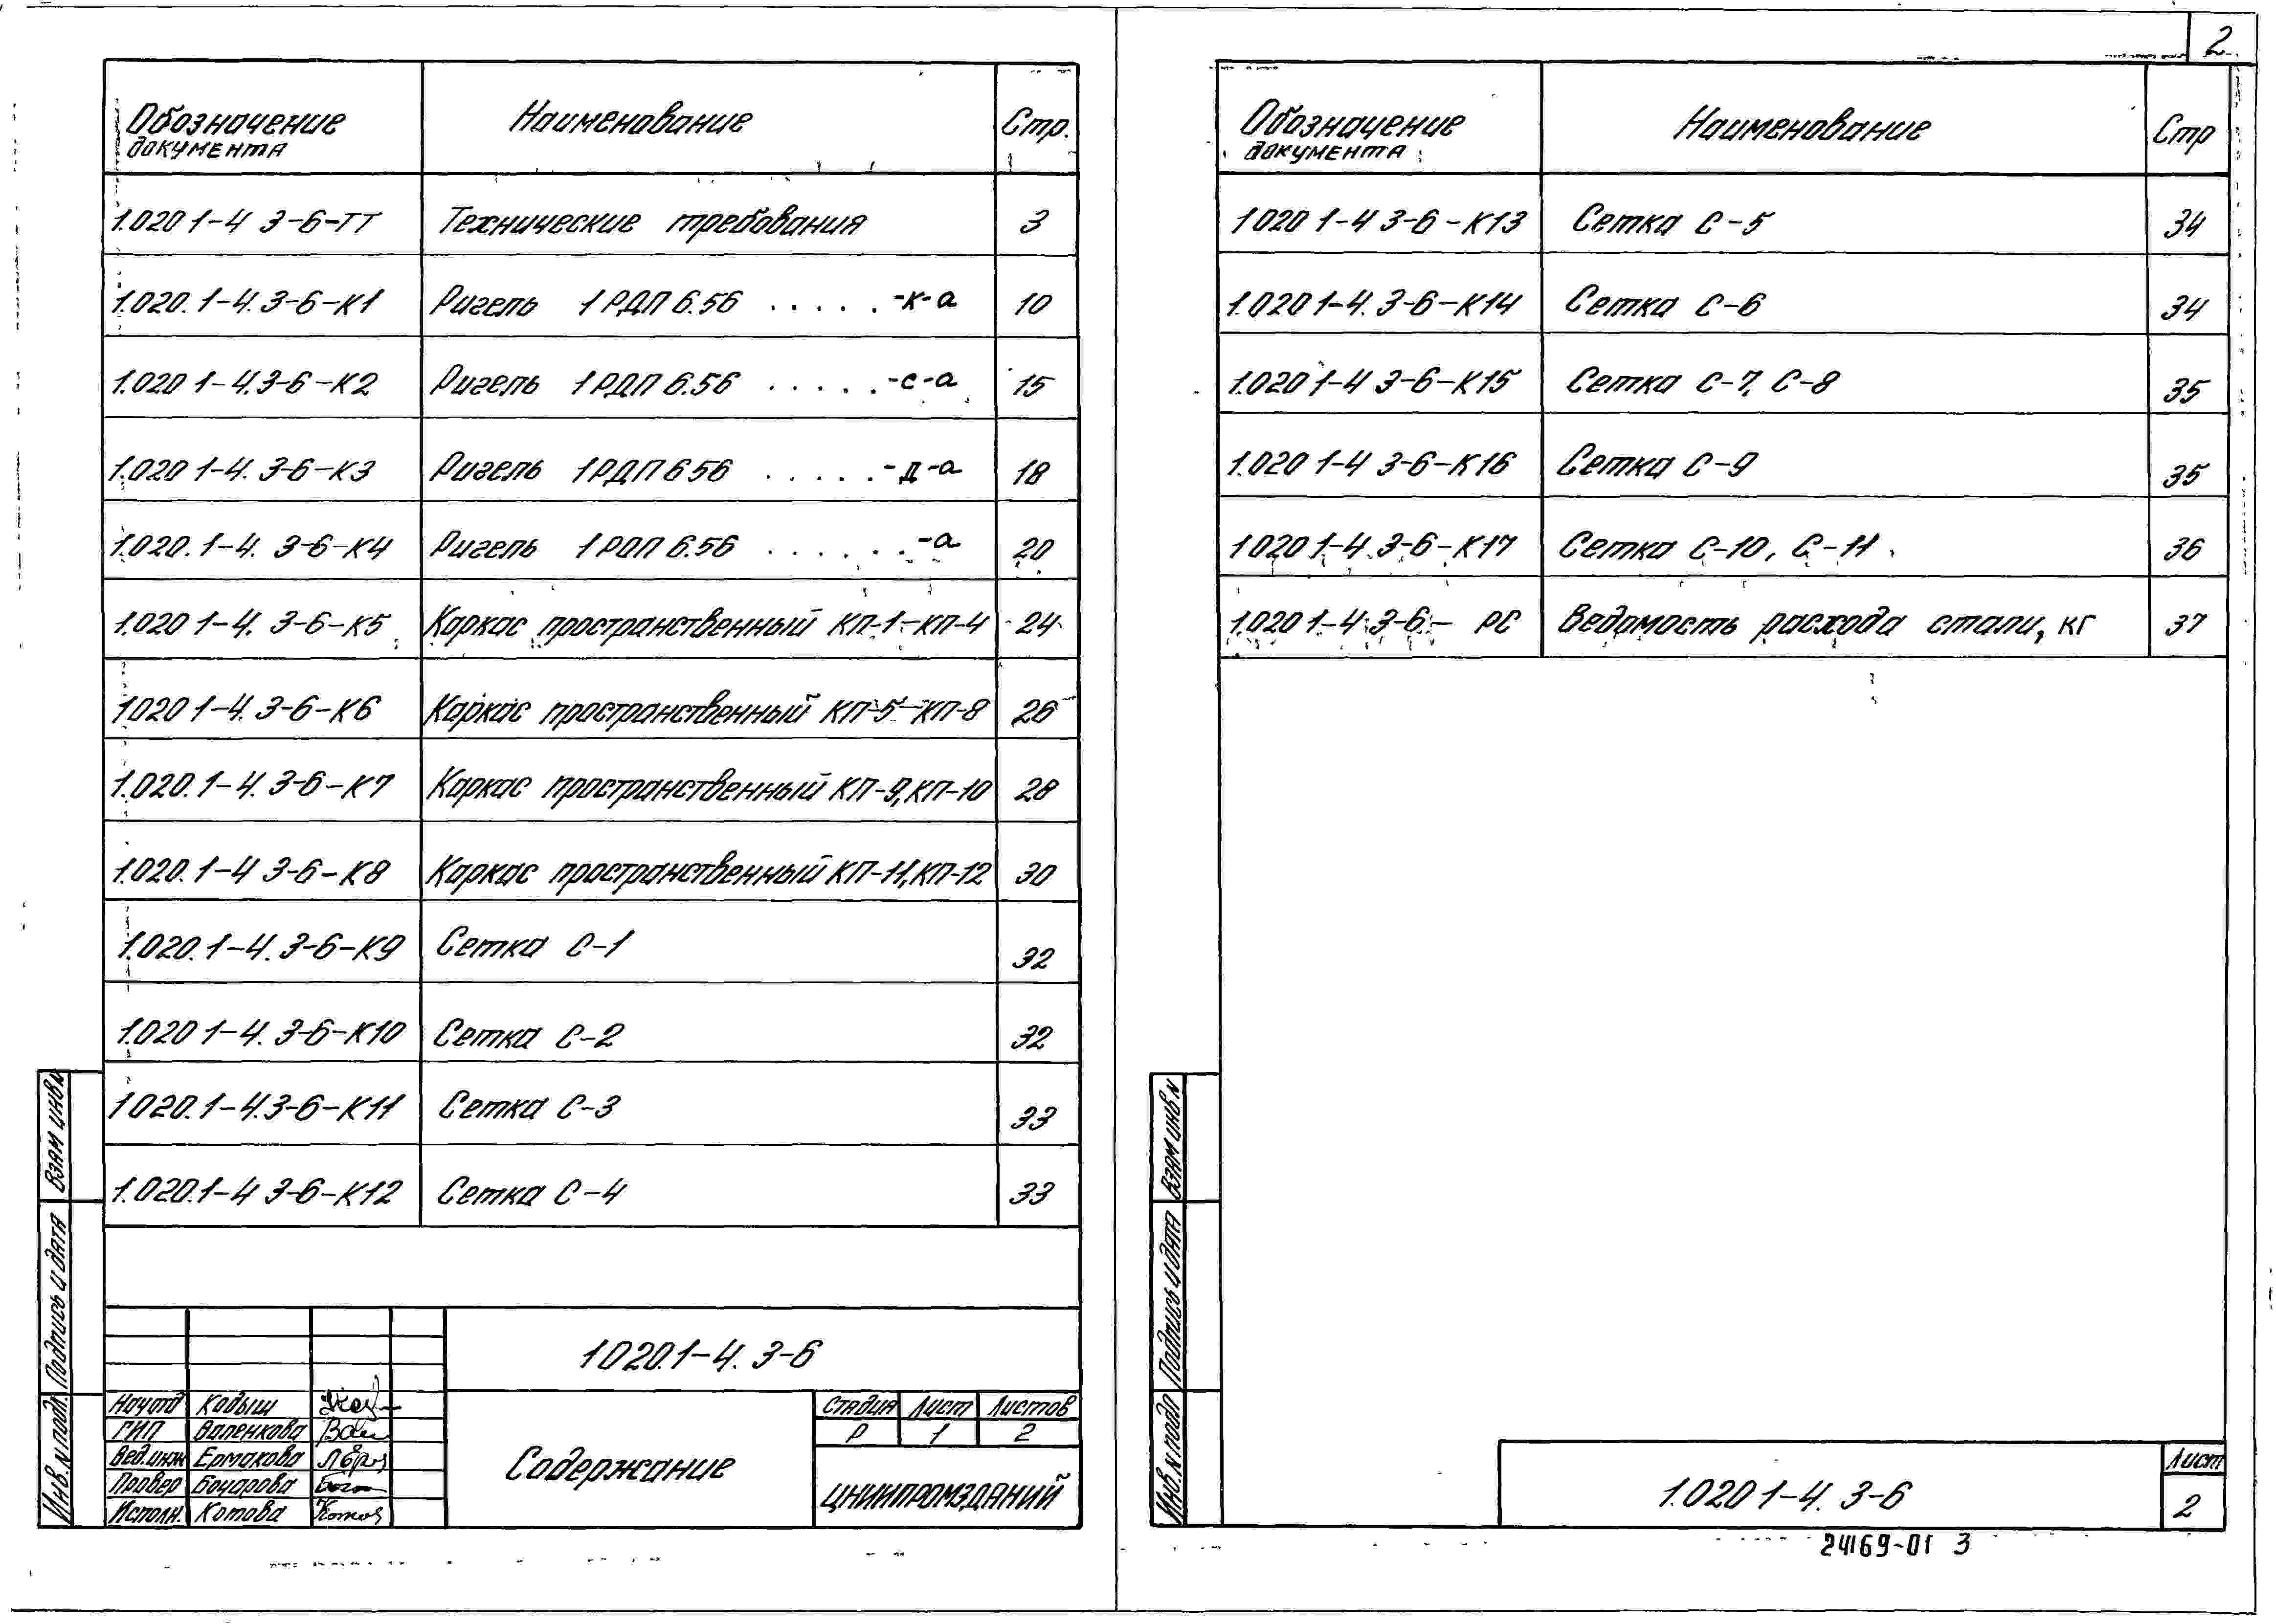 2
Обозначение документа Наименование Стр.
1.020 1-4 3-6-ТТ Технические требования 3
1.020.1-4.3-6-К1 Ригель 1РДП 6.56 .....-к-а 10
1.020 1-4.3-6-К2 Ригель 1РДП 6.56 .....-с-а 15
1.020 1-4.3-6-К3 Ригель 1РДП 656 .....-д-а 18
1.020.1-4. 3-6-К4 Ригель 1РОП 6.56 ......-а 20
1.020 1-4. 3-6-К5 Каркас пространственный КП-1-КП-4 24
1020 1-4.3-6-К6 Каркас пространственный КП-5-КП-8 26
1.020.1-4.3-6-К7 Каркас пространственный КП-9, КП-10 28
1.020.1-4 3-6-К8 Каркас пространственный КП-11, КП-12 30
1.020.1-4.3-6-К9 Сетка С-1 32
1.020 1-4.3-6-К10 Сетка С-2 32
1020.1-4.3-6-К11 Сетка С-3 33
1.020.1-4 3-6-К12 Сетка С-4 33
1020.1-4. 3-6
Нач отд Кодыш
ГИП Валенкова
Вед. инж Ермакова
Провер Бочарова
Исполн. Котова
Содержание
Стадия Лист Листов
Р 1 2
ЦНИИПРОМЗДАНИЙ
Взам инв №
Подпись и дата
Инв. № подл.
Обозначение документа Наименование Стр
1020 1-4 3-6-К13 Сетка С-5 34
1.020 1-4.3-6-К14 Сетка С-6 34
1.020 1-4 3-6-К15 Сетка С-7, С-8 35
1.020 1-4 3-6-К16 Сетка С-9 35
1020 1-4.3-6-К17 Сетка С-10, С-11 36
1.020 1-4 3-6- РС Ведомость расхода стали, кг 37
Взам инв №
Подпись и дата
Инв. № подл
1.020 1-4. 3-6
Лист
2
24169-01 3